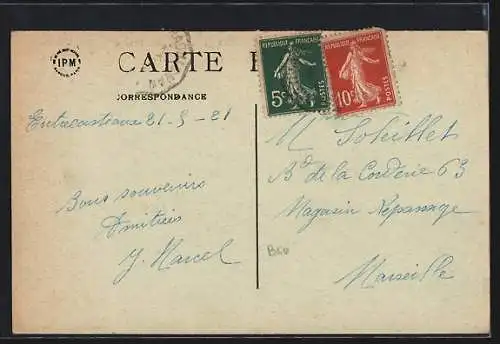 IPM
CARTE P
CORRESPONDANCE
REPUBLIQUE FRANÇAISE
5c
POSTES
REPUBLIQUE FRANÇAISE
10c
POSTES
Entrecasteaux 21-9-21
Bons souvenirs
Amitiés
J. Marcel
Mr Soleillet
Bd de la Corderie 63
Magasin Repassage
Marseille